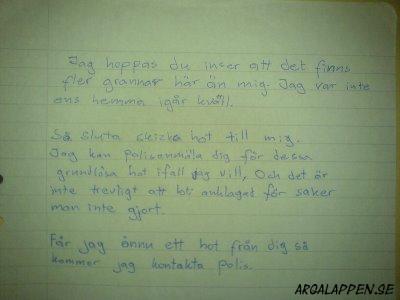 Jag hoppas du inser att det finns
fler grannar här än mig. Jag var inte
ens hemma igår kväll.
Så sluta skicka hot till mig.
Jag kan polisanmäla dig för dessa
grundlösa hot ifall jag vill, Och det är
inte trevligt att bli anklagad för saker
man inte gjort.
Får jag ännu ett hot från dig så
kommer jag kontakta polis.
ARGALAPPEN.SE